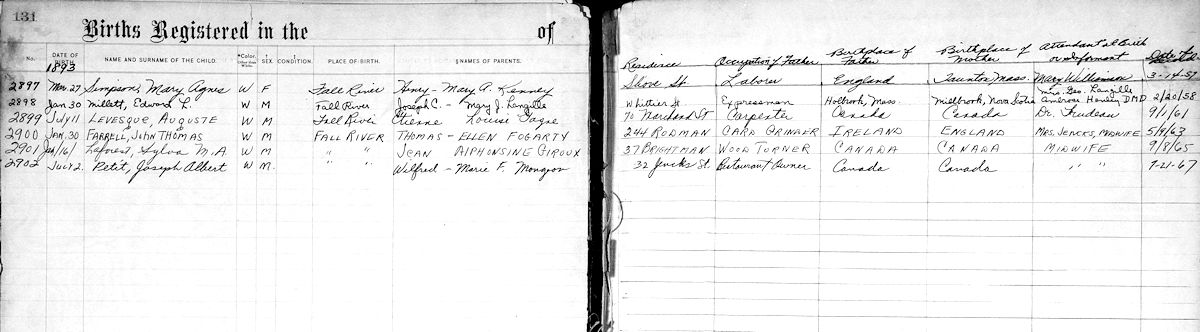 131
Births Registered in the of
No. DATE OF BIRTH. NAME AND SURNAME OF THE CHILD. *Color. SEX. CONDITION. PLACE OF BIRTH. §NAMES OF PARENTS. Residence Occupation of Father Birthplace of Father Birthplace of Mother Attendant at Birth or Informant
1893
2897 Mar. 27 Simpson, Mary Agnes W F Fall River Henry - Mary A. Kenney Shove St Laborer England Taunton Mass. Mary Wilkinson 3-14-57
2898 Jan 30 Millett, Edward L. W M Fall River Joseph C. - Mary J. Langille Whittier St Expressman Holbrook, Mass. Millbrook, Nova Scotia Mrs. Geo. Langille Ambrose Hanley DMD 2/20/58
2899 July 11 LEVESQUE, AUGUSTE W M Fall River Etienne Louise Gagne 70 Marchand St Carpenter Canada Canada Dr. Trudeau 9/1/61
2900 JAN. 30 FARRELL, JOHN THOMAS W M FALL RIVER THOMAS - ELLEN FOGARTY 244 RODMAN CARD GRINDER IRELAND ENGLAND MRS. JENCKS, MIDWIFE 5/9/63
2901 Laforest, Sylva M.A W M " " JEAN ALPHONSINE GIROUX 37 BRIGHTMAN WOOD TURNER CANADA CANADA MIDWIFE 9/8/65
2902 July 2. Petit, Joseph Albert W M. " " Wilfred - Marie F. Mongeon 32 Jencks St. Restaurant Owner Canada Canada " " 7-21-67